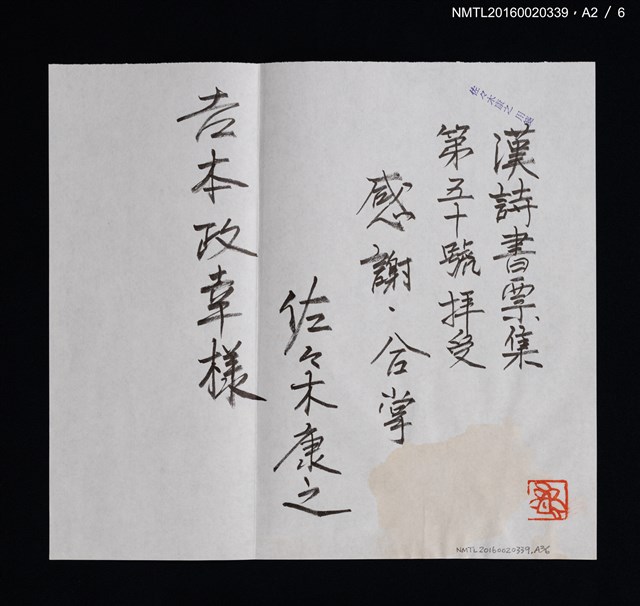 NMTL20160020339,A2 / 6
漢詩書票集
第五十號拝受
感謝・合掌
佐々木康之
吉本政幸様
NMTL20160020339.A36